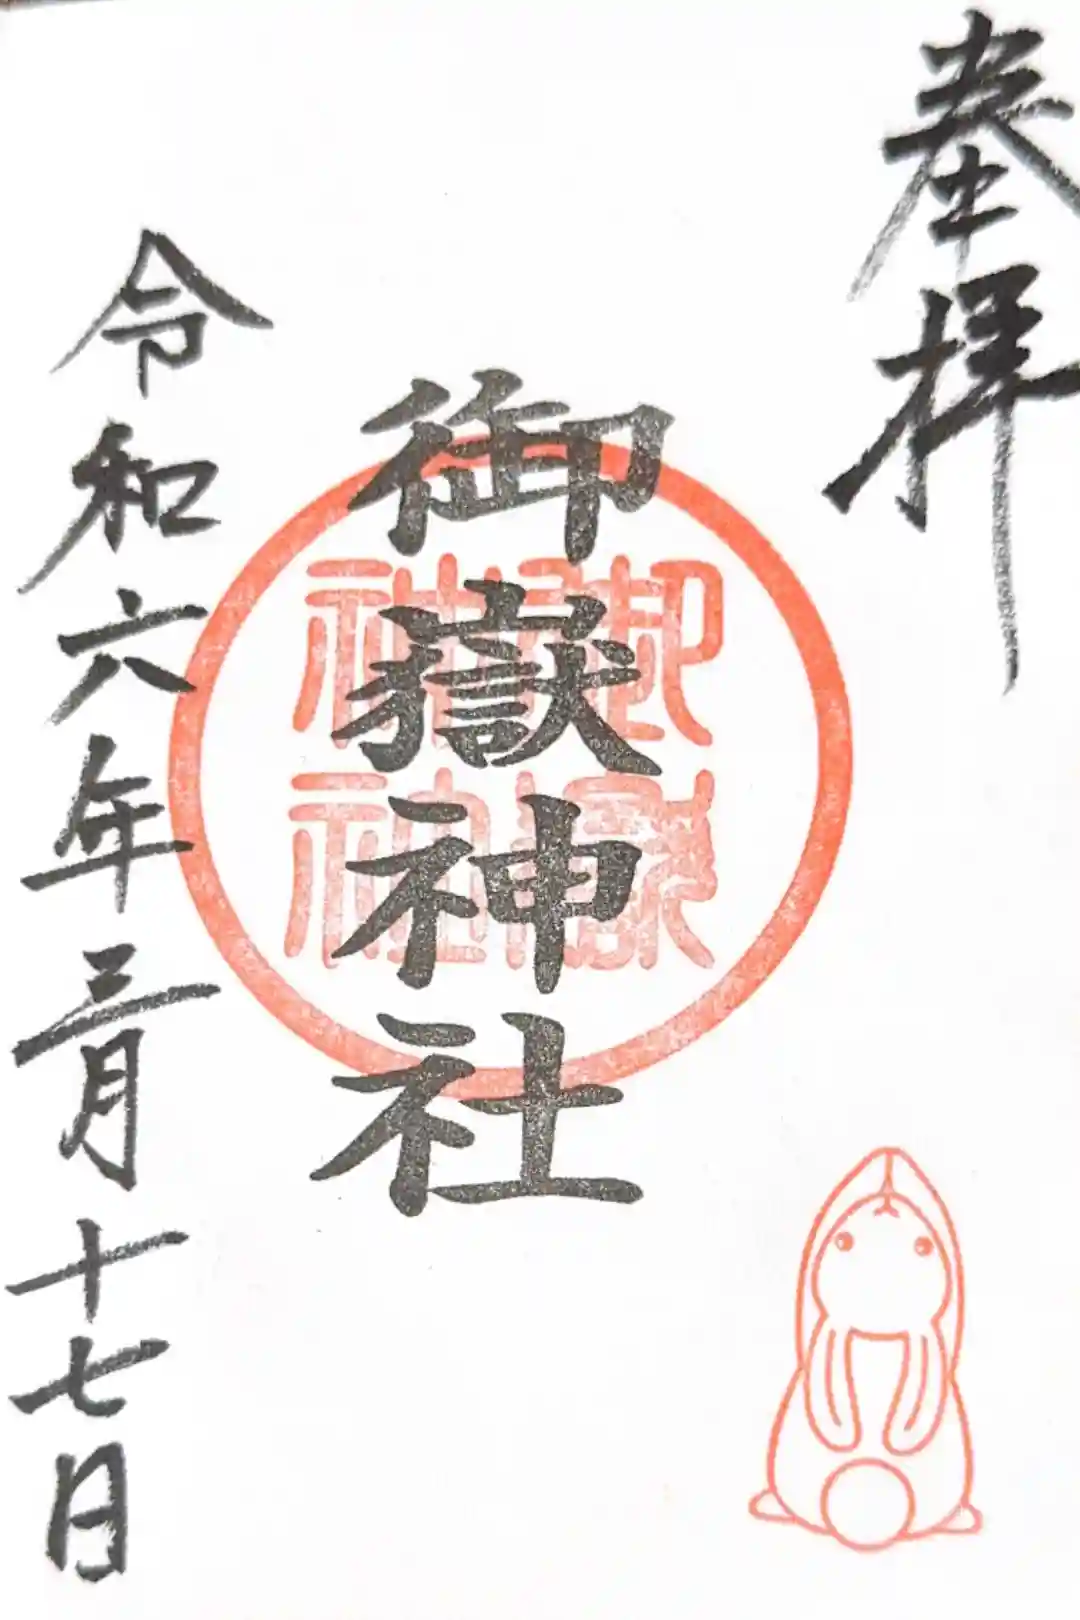 奉拝
御嶽神社
御嶽
神社
令和六年三月十七日